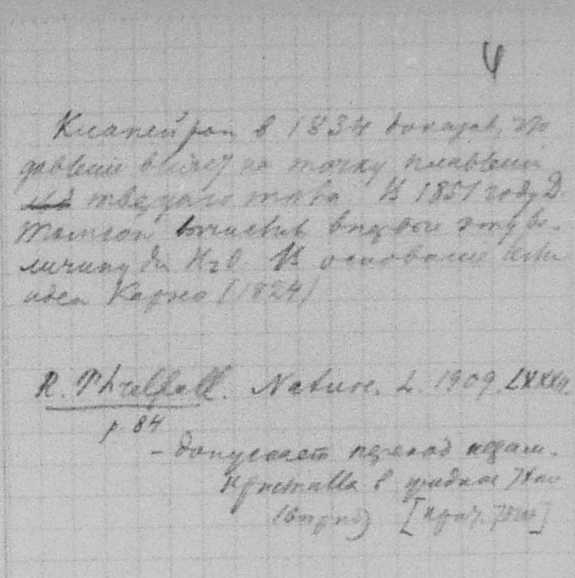 4
Клапейрон в 1834 доказал, что
давление влияет на точку плавления
твердого тела. В 1851 году Д.
Томсон вычислил впервые эту ве-
личину для H2O. В основание
идея Карно (1824)
R. Threlfall. Nature. L. 1909.
p 84
– допускает переход
кристалла в жидкое